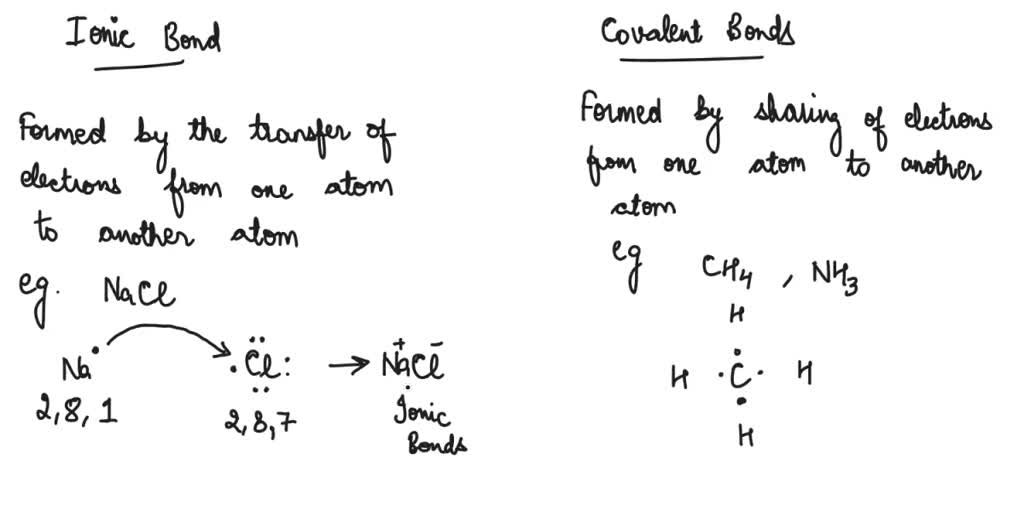 Ionic Bond
Formed by the transfer of
electrons from one atom
to another atom
eg. NaCl
Na• •Cl: → Na⁺Cl⁻
2,8,1 2,8,7 Ionic
Bonds
Covalent Bonds
Formed by sharing of electrons
from one atom to another
atom
eg CH₄ , NH₃
H
H ·C· H
H